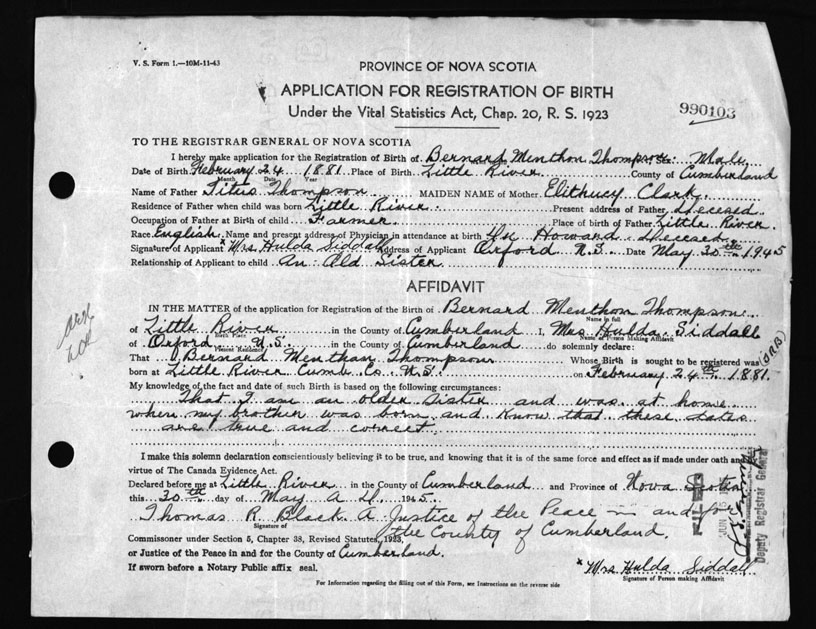 V. S. Form 1.—10M-11-43
PROVINCE OF NOVA SCOTIA
APPLICATION FOR REGISTRATION OF BIRTH
Under the Vital Statistics Act, Chap. 20, R. S. 1923
990103
TO THE REGISTRAR GENERAL OF NOVA SCOTIA
I hereby make application for the Registration of Birth of Bernard Menthon Thompson Sex Male
Date of Birth February 24 1881 Place of Birth Little River County of Cumberland
Month Date Year
Name of Father Titus Thompson MAIDEN NAME of Mother Clark
Residence of Father when child was born Little River Present address of Father Decesed
Occupation of Father at Birth of child Farmer Place of birth of Father Little River
Race English Name and present address of Physician in attendance at birth Howard Decesed
Signature of Applicant x Mrs Hulda Siddall Address of Applicant Oxford N.S. Date May 30th 1945
Relationship of Applicant to child An Old Sister
AFFIDAVIT
IN THE MATTER of the application for Registration of the Birth of Bernard Menthon Thompson
Name in full
of Little River in the County of Cumberland I, Mrs Hulda Siddall
Birth Place Name of Person Making Affidavit
of Oxford N.S. in the County of Cumberland do solemnly declare:
Present Residence
That Bernard Menthan Thompson Whose Birth is sought to be registered was
born at Little River Cumb. Co. N.S. on February 24th 1881
My knowledge of the fact and date of such Birth is based on the following circumstances:
That I am an older Sister and was at home
when my brother was born and Know that these dates
are true and correct
I make this solemn declaration conscientiously believing it to be true, and knowing that it is of the same force and effect as if made under oath and
virtue of The Canada Evidence Act.
Declared before me at Little River in the County of Cumberland and Province of Nova Scotia
this 30th day of May A D. 1945
Thomas R. Black A Justice of the Peace in and for
Signature of the County of Cumberland.
Commissioner under Section 5, Chapter 38, Revised Statutes, 1923,
or Justice of the Peace in and for the County of Cumberland.
If sworn before a Notary Public affix seal.
x Mrs Hulda Siddall
Signature of Person making Affidavit
For Information regarding the filling out of this Form, see Instructions on the reverse side
FILED
Deputy Registrar General